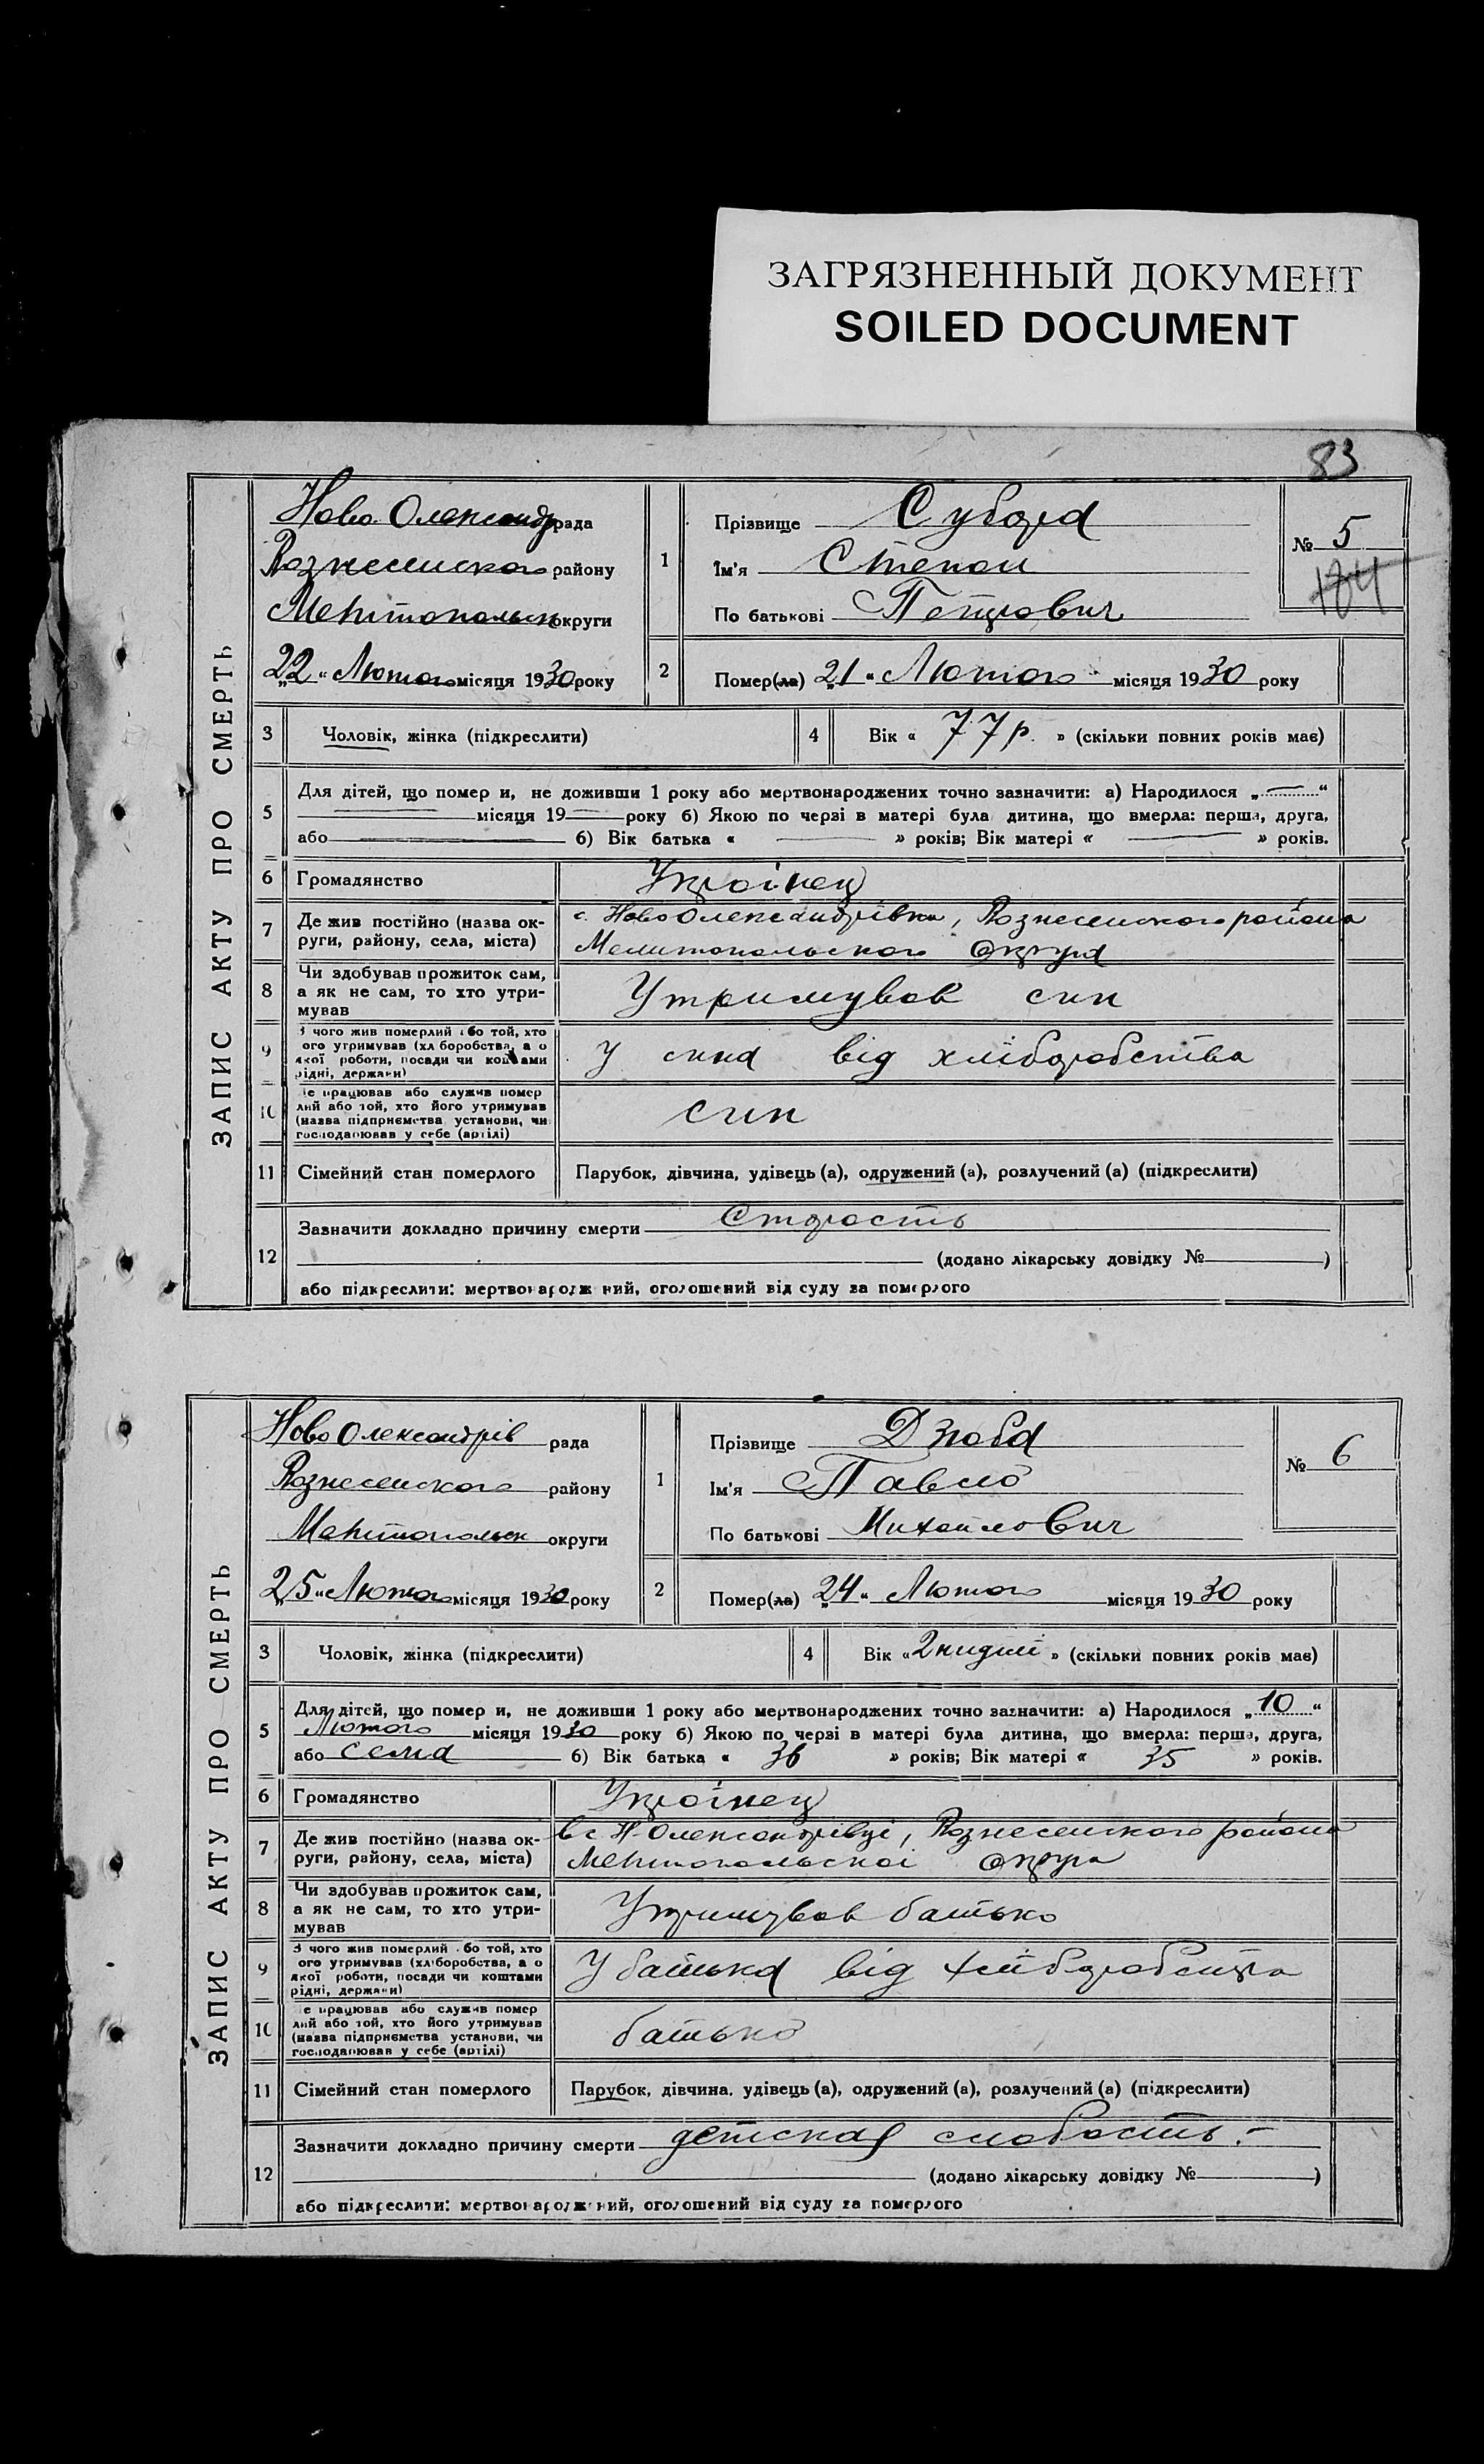 ЗАГРЯЗНЕННЫЙ ДОКУМЕНТ
SOILED DOCUMENT
83
ЗАПИС АКТУ ПРО СМЕРТЬ
Ново Олександр рада
Вознесенского району
Мелітопольск округи
„22“ Лютого місяця 1930 року
1
Прізвище
Ім'я Степан
По батькові Петрович
№ 5
184
2
Помер(ла) „21“ Лютого місяця 1930 року
3 Чоловік, жінка (підкреслити)
4 Вік « 77 р. » (скільки повних років має)
5 Для дітей, що помер и, не доживши 1 року або мертвонароджених точно зазначити: а) Народилося „ — “
— місяця 19— року б) Якою по черзі в матері була дитина, що вмерла: перша, друга,
або — б) Вік батька « — » років; Вік матері « — » років.
6 Громадянство Українец
7 Де жив постійно (назва ок-
руги, району, села, міста)
с. Ново Олександрівка, Вознесенского района
Мелитопольского округа
8 Чи здобував прожиток сам,
а як не сам, то хто утри-
мував
Утримував син
9 З чого жив померлий або той, хто
ого утримував (хлборобства, а о
якої роботи, посади чи коштами
рідні, держави)
У сина від хліборобства
10 е працював або служив помер
лий або той, хто його утримував
(назва підприємства установи, чи
господарював у себе (артілі)
син
11 Сімейний стан померлого
Парубок, дівчина, удівець (а), одружений (а), розлучений (а) (підкреслити)
12 Зазначити докладно причину смерти Старость
(додано лікарську довідку № )
або підкреслити: мертвонародж ний, оголошений від суду за померлого
ЗАПИС АКТУ ПРО СМЕРТЬ
Ново Олександрів рада
Вознесенского району
Мелітопольск округи
„25“ Лютого місяця 1930 року
1
Прізвище Дзюба
Ім'я Павло
По батькові Михайлович
№ 6
2
Помер(ла) „24“ Лютого місяця 1930 року
3 Чоловік, жінка (підкреслити)
4 Вік « 2 ниділі » (скільки повних років має)
5 Для дітей, що помер и, не доживши 1 року або мертвонароджених точно зазначити: а) Народилося „ 10 “
Лютого місяця 1930 року б) Якою по черзі в матері була дитина, що вмерла: перша, друга,
або сема б) Вік батька « 36 » років; Вік матері « 35 » років.
6 Громадянство Українец
7 Де жив постійно (назва ок-
руги, району, села, міста)
в с Н-Олександрівці, Вознесенского района
Мелітопольскоі округи
8 Чи здобував прожиток сам,
а як не сам, то хто утри-
мував
Утримував батько
9 З чого жив померлий або той, хто
ого утримував (хліборобства, а о
якої роботи, посади чи коштами
рідні, держави)
У батька від хліборобства
10 е працював або служив помер
лий або той, хто його утримував
(назва підприємства установи, чи
господарював у себе (артілі)
батько
11 Сімейний стан померлого
Парубок, дівчина, удівець (а), одружений (а), розлучений (а) (підкреслити)
12 Зазначити докладно причину смерти детская слабость.-
(додано лікарську довідку № )
або підкреслити: мертвонародж ний, оголошений від суду за померлого